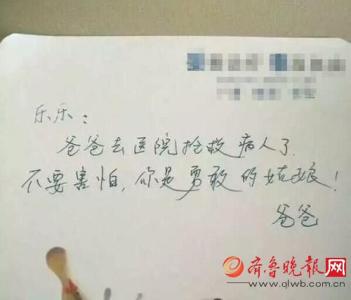 乐乐：
爸爸去医院抢救病人了.
不要害怕,你是勇敢的姑娘!
爸爸
齐鲁晚报网
www.qlwb.com.cn